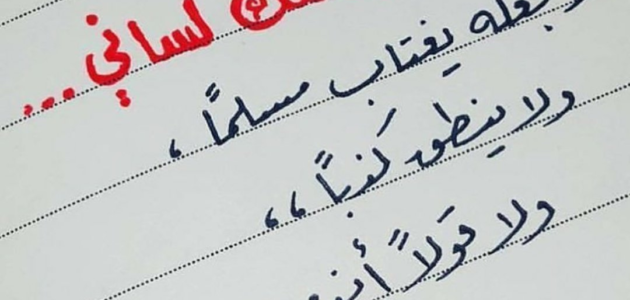 لساني ...
يغتاب مسلماً ،
ولا ينطق كذباً ،،
ولا قولاً